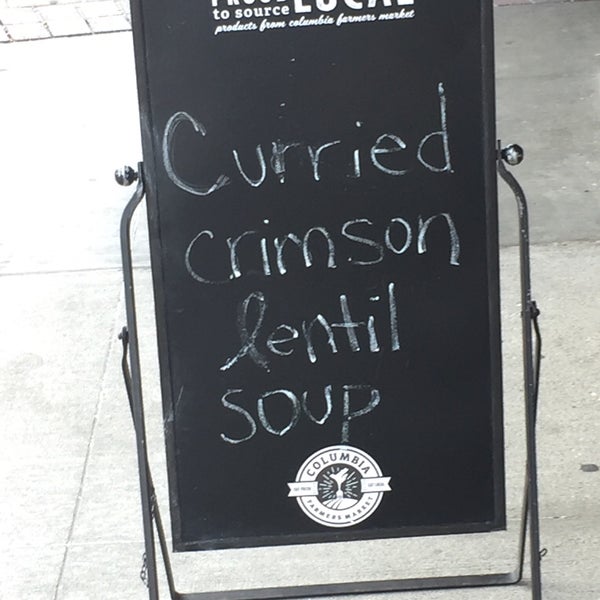 to source LOCAL
products from columbia farmers market
Curried
crimson
lentil
soup
COLUMBIA
FARMERS MARKET